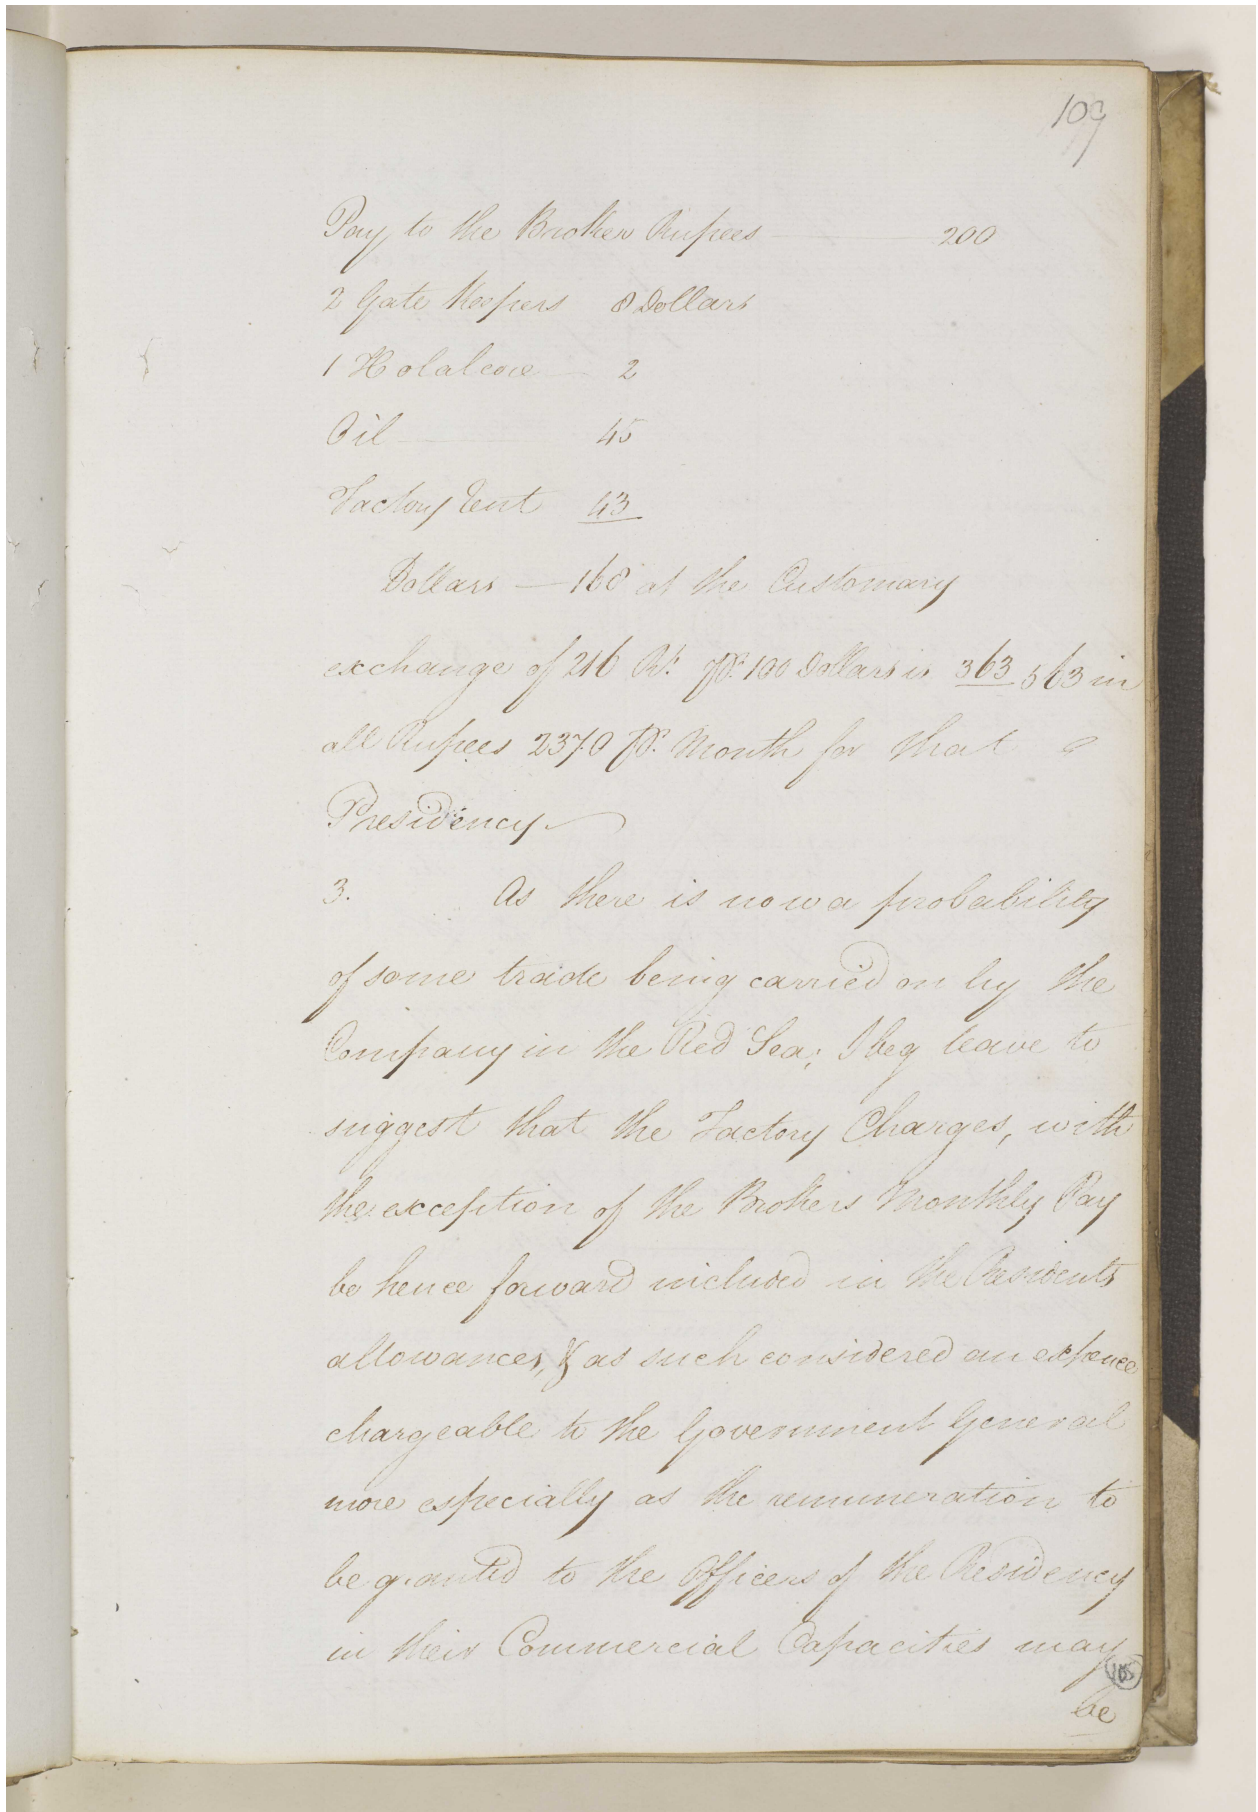 109
Pay to the Broker Rupees 200
2 Gate Keepers 8 Dollars
1 Holalcore 2
Oil 45
Factory Rent 43
Dollars 168 at the Customary
exchange of 216 Rs. pr. 100 Dollars is 363 563 in
all Rupees 2370 pr. Month for that
Presidency
3. As there is now a probability
of some trade being carried on by the
Company in the Red Sea; I beg leave to
suggest that the Factory Charges, with
the exception of the Brokers Monthly Pay
be hence forward included in the Residents
allowances, & as such considered an expence
chargeable to the Government General
more especially as the remuneration to
be granted to the Officers of the Residency
in their Commercial Capacities may
105
be